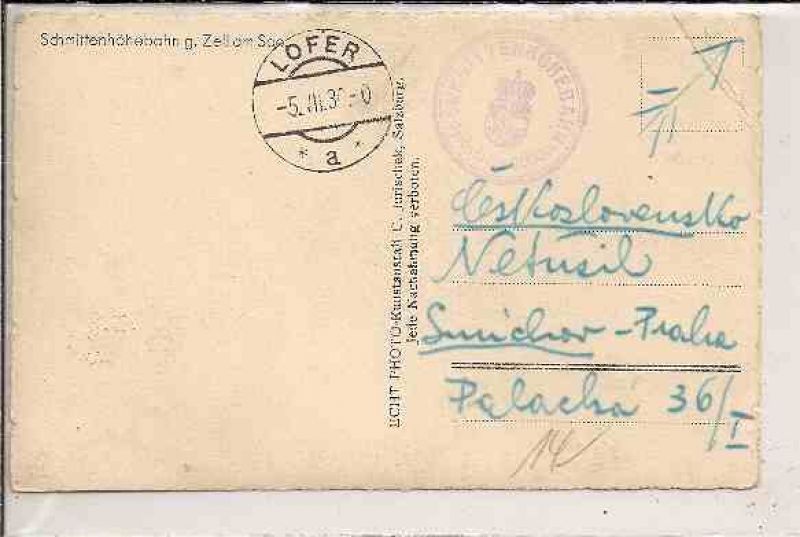 Schmittenhöhebahn g. Zell am See
LOFER
a
ECHT PHOTO-Kunstanstalt C. Jurischek, Salzburg.
Jede Nachahmung verboten.
Československo
Netušil
Smichov - Praha
Palacká 36/I
14